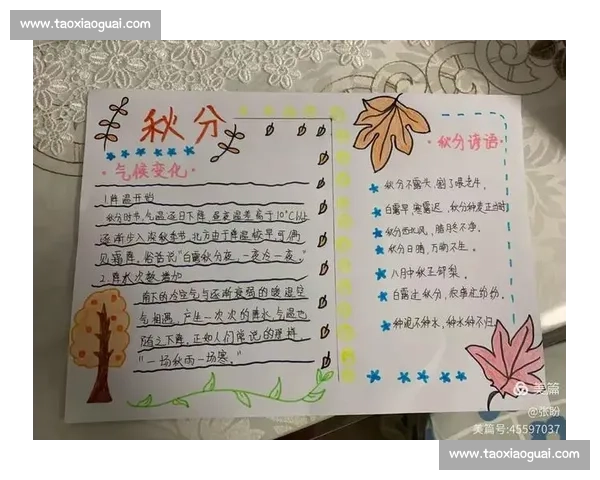 www.taoxiaoguai.com
秋分
·气候变化·
1.降温开始
秋分时节,气温逐日下降,昼夜温差高于10℃以上
逐渐步入深秋季节,北方由于降温候早可偶
见霜降。俗话说"白露秋分夜,一夜冷一夜。"
2.降水次数增加
南下的冷空气与逐渐衰弱的暖湿空
气相遇,产生一次次的降水,气温也
随之下降,正如人们常说的那样
"一场秋雨一场寒。"
·秋分谚语·
秋分不露头,割了喂老牛。
白露早,寒露迟,秋分种麦正当时
秋分西北风,腊月冬
秋分日晴,万物不生。
八月中秋
白露过秋分,农事
种泥不种水,种水种不归
美篇
@张盼
美篇号:45597037
www.taoxiaoguai.com